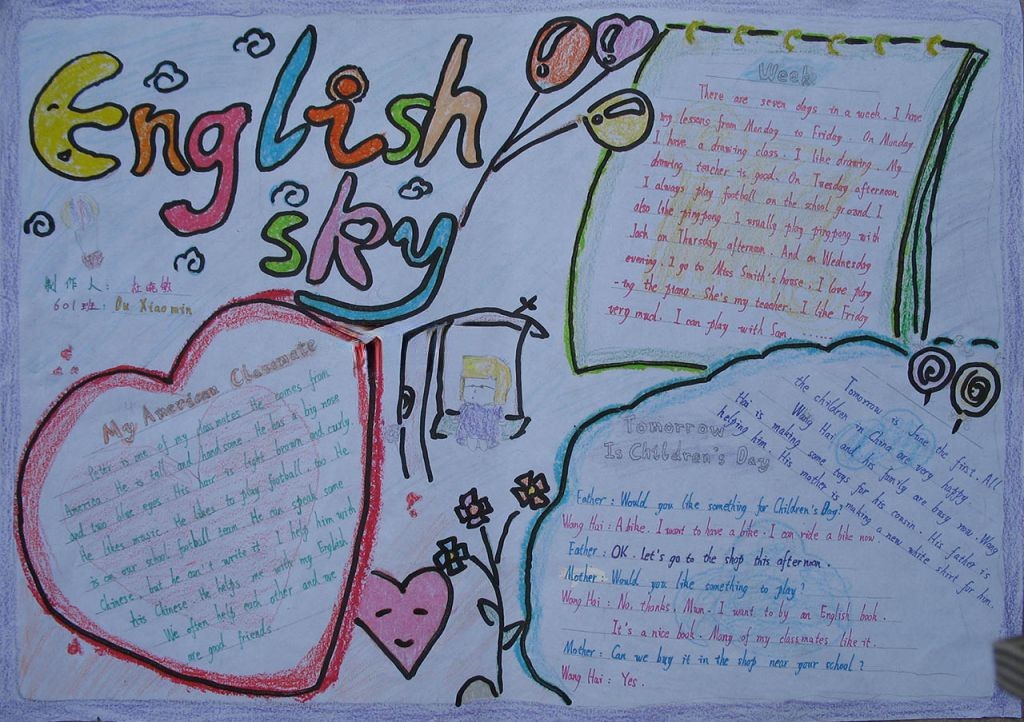 English
sky
制作人: 杜晓敏
601班: Du Xiaomin
Week
There are seven days in a week. I have
my lessons from Monday to Friday. On Monday
I have a drawing class. I like drawing. My
drawing teacher is good. On Tuesday afternoon
I always play football on the school ground. I
also like pingpong. I usually play pingpong with
Jack on Thursday afternoon. And on Wednesday
evening. I go to Miss Smith's house. I love play
-ing the piano. She's my teacher. I like Friday
very much. I can play with Sam ......
My American Classmate
Peter is me of my classmates. He comes from
America. He is tall and handsome. He has a big nose
and two blue eyes. His hair is light brown and curly.
He likes music. He likes to play football, too. He
is on our school football team. He can speak some
Chinese, but he can't write it. I help him with
his Chinese. He helps me with my English.
We often help each other and we
are good friends.
Tomorrow
Is Children's Day
Tomorrow is June the first. All
the children in China are very happy.
Wang Hai and his family are busy now. Wang
Hai is making some toys for his cousin. His father is
helping him. His mother is making a new white shirt for him.
Father: Would you like something for Children's Day?
Wang Hai: A bike. I want to have a bike. I can ride a bike now.
Father: OK. Let's go to the shop this afternoon.
Mother: Would you like something to play?
Wang Hai: No, thanks, Mum. I want to by an English book.
It's a nice book. Many of my classmates like it.
Mother: Can we buy it in the shop near your school?
Wang Hai: Yes.